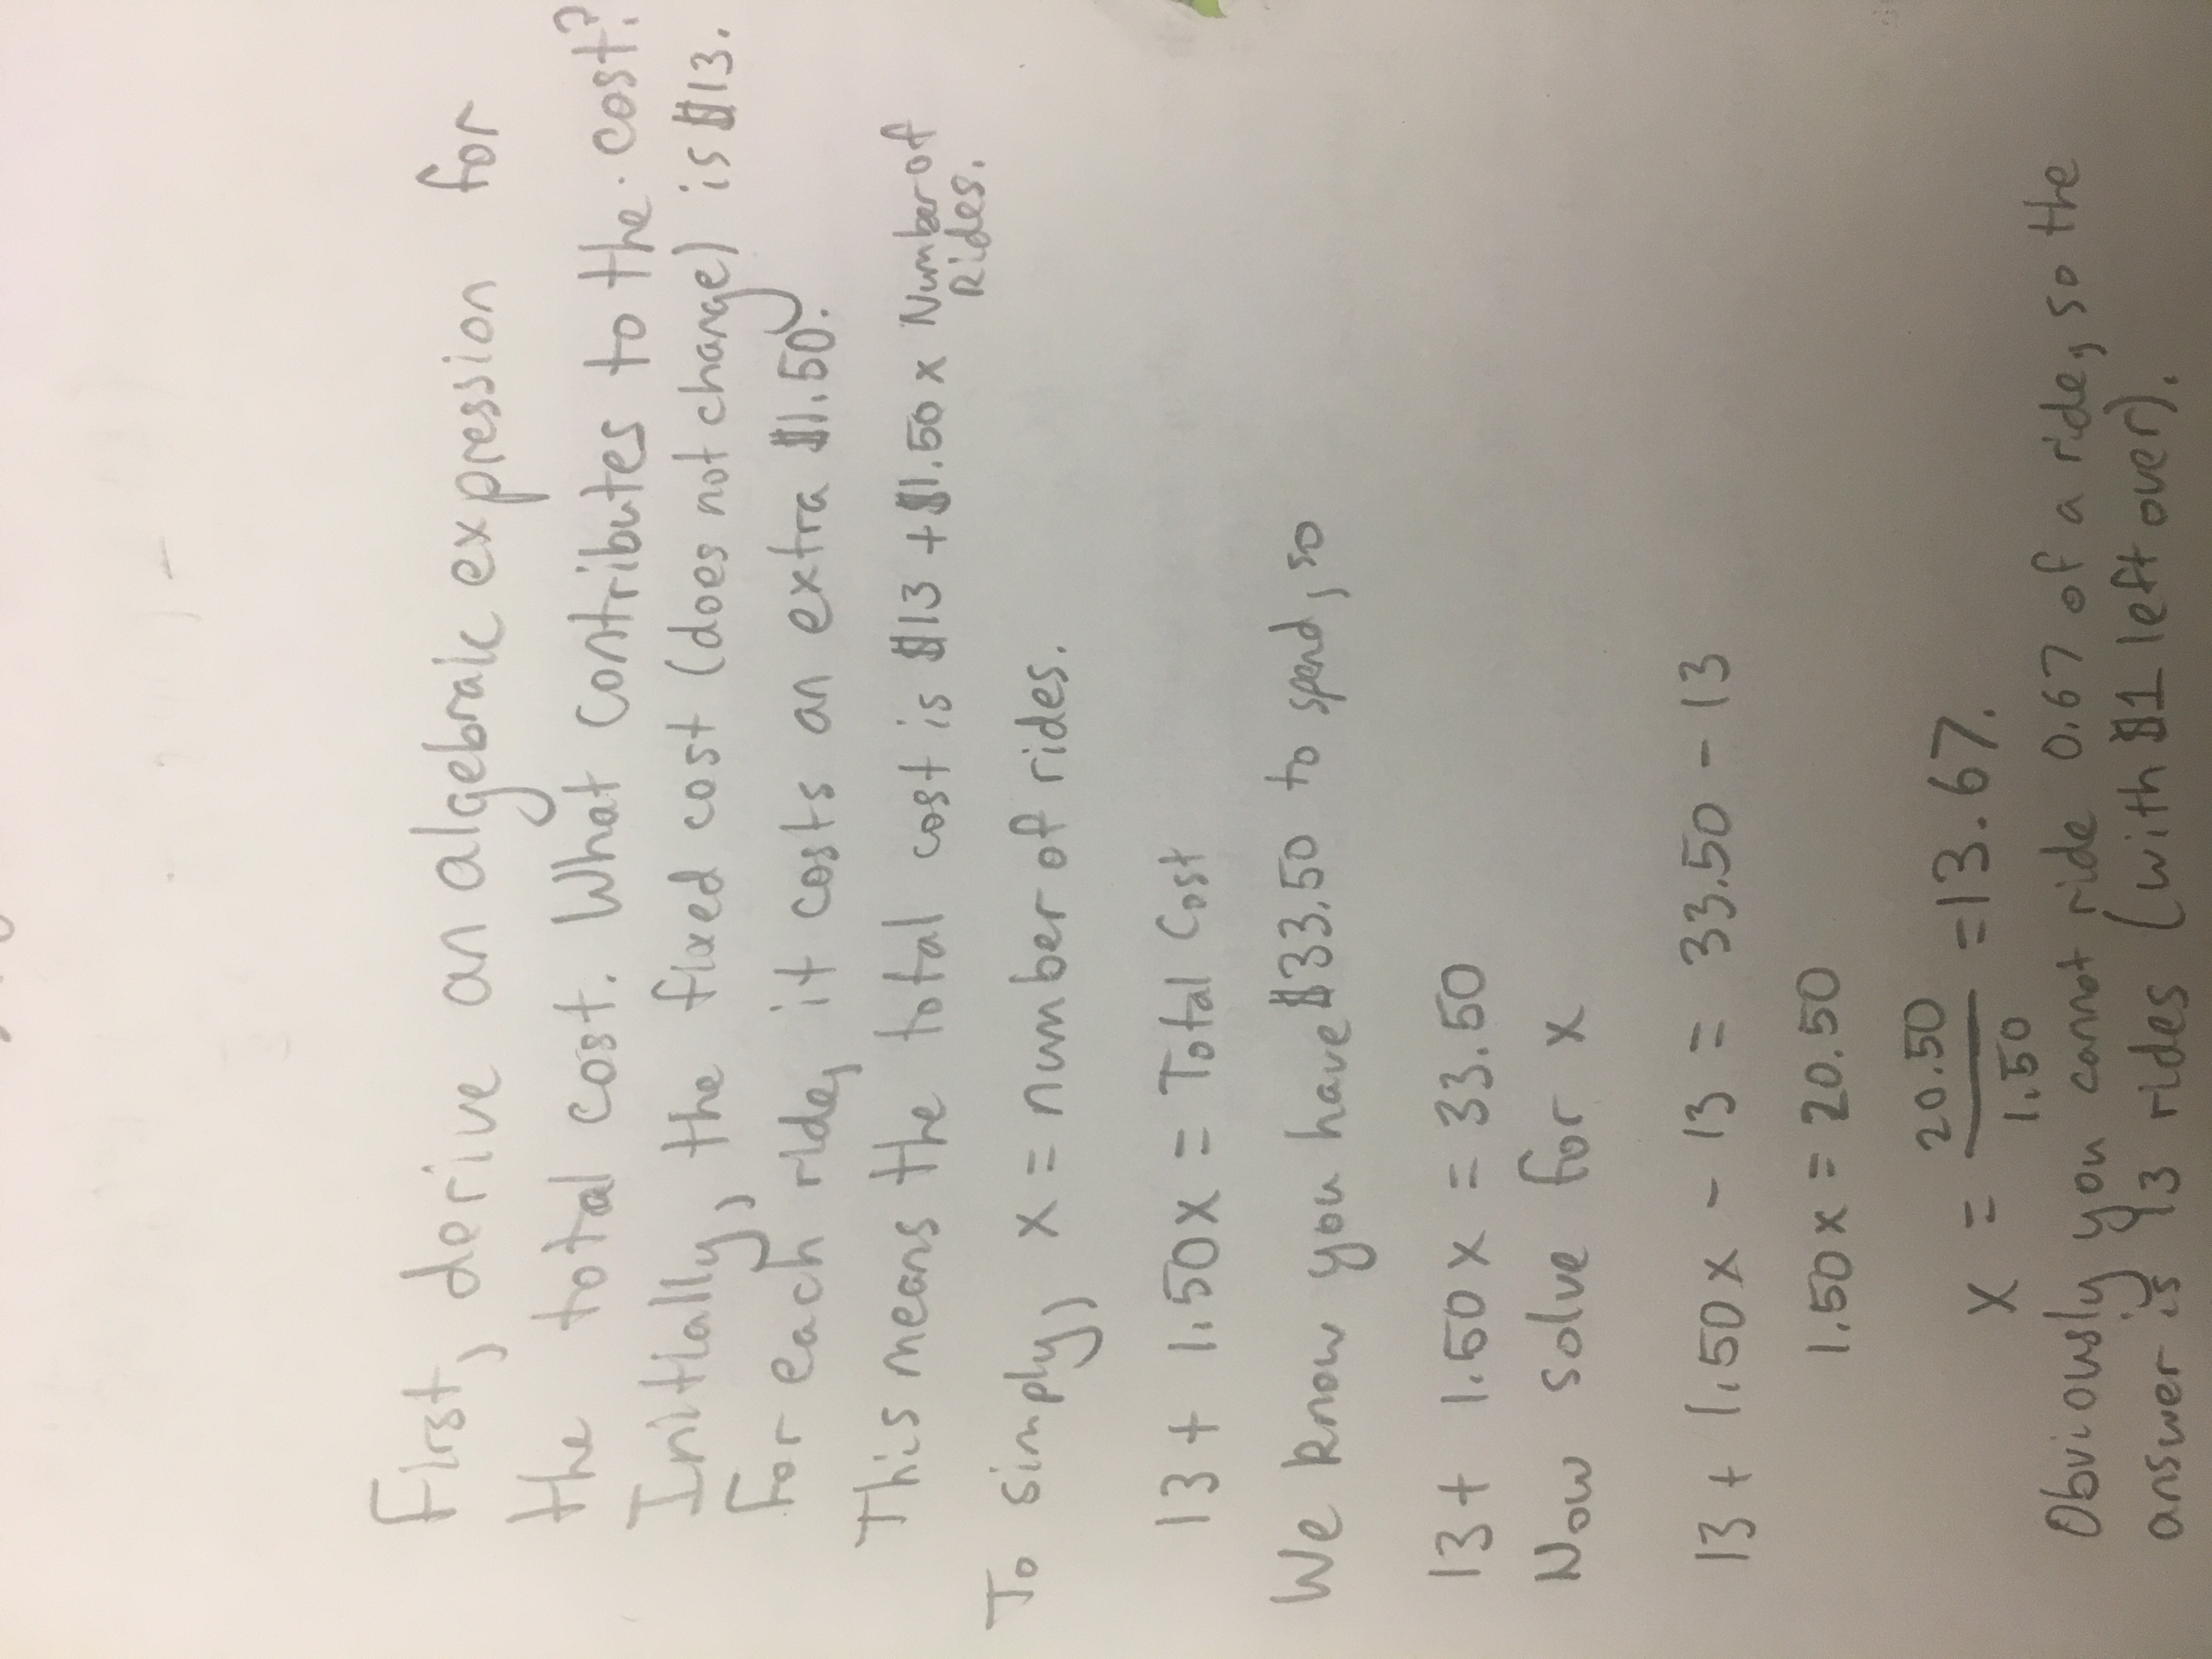 First, derive an algebraic expression for
the total cost. What contributes to the cost?
Initially, the fixed cost (does not change) is $13.
For each ride, it costs an extra $1.50.
This means the total cost is $13 + $1.50 x Number of
Rides.
To simply, x = number of rides.
13 + 1.50x = Total Cost
We know you have $33.50 to spend, so
13 + 1.50x = 33.50
Now solve for x
13 + 1.50x - 13 = 33.50 - 13
1.50x = 20.50
x = 20.50/1.50 = 13.67.
Obviously you cannot ride 0.67 of a ride, so the
answer is 13 rides (with $1 left over).